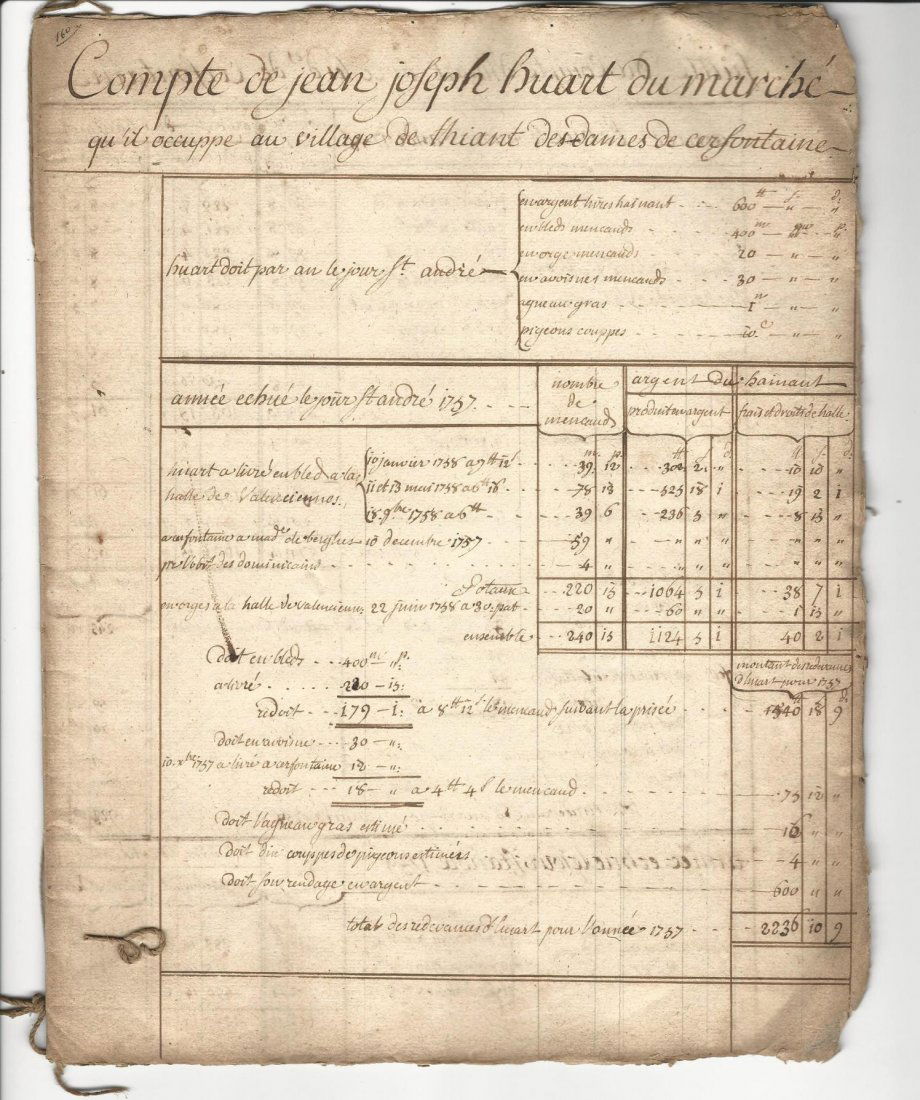 160
Compte de jean joseph huart du marché
qu'il occuppe au village de thiant des dames de cerfontaine
huart doit par an le jour St. andré
en argent livres hainaut 600 tt — " — "
en bleds mencauds 400 m — "
en orge mencauds 20 — " — "
en avoisnes mencauds 30 — " — "
agneau gras 1 — " — "
pigeons couppes 10 c — " — "
année echué le jour St andré 1757
nombre de mencauds
argent du hainaut
produit en argent
frais et droits de halle
huart a livré en bled a la halle de Valenciennes
10 janvier 1758 a 7 tt 12 s 39 12 302 2 " 10 10 "
11 et 13 mai 1758 a 6 tt 16 78 13 525 18 1 19 2 1
18 9bre 1758 a 6 tt 39 6 236 5 " 8 15 "
a cerfontaine a made de berghes 10 decembre 1757 59 " " " " " " "
pr l'obit des dominicains 4 " " " " " " "
Totaux 220 15 1064 5 1 38 7 1
en orges a la halle de valenciennes 22 juin 1758 a 30 pat 20 " 60 " " 1 15 "
ensemble 240 15 1124 5 1 40 2 1
Doit en bleds 400 m — " p.
a livré 220 — 15
redoit 179 — 1 a 8 tt 12 s le mencaud suivant la prisée
montant des redevances d'huart pour 1757
1540 18 9
doit en avoisne 30 — "
10. xbre 1757 a livré a cerfontaine 12 — "
redoit 18 — " a 4 tt 4 s le mencaud 75 12 "
doit l'agneau gras estimé 16 " "
doit dix couppes de pigeons estimées 4 " "
doit son rendage en argent 600 " "
total des redevances d'huart pour l'année 1757 2236 10 9